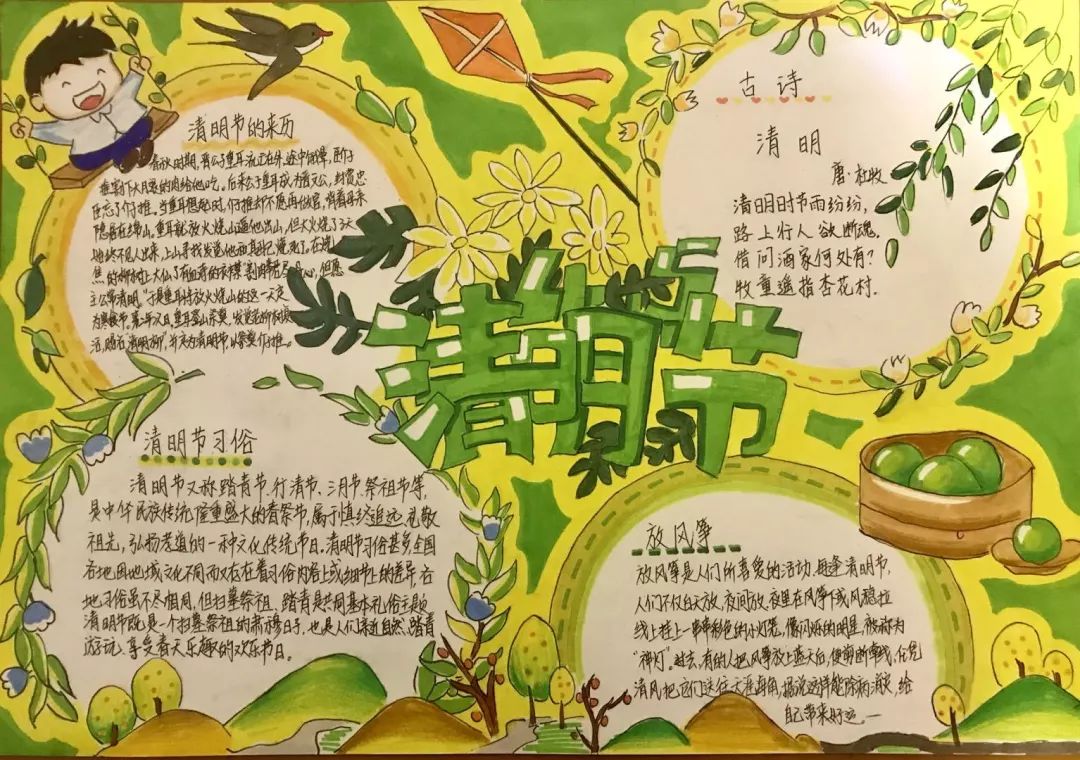 清明节的来历
春秋时期,晋公子重耳流亡在外,途中饿晕,臣介子
推割下大腿的肉给他吃。后来公子重耳成为晋文公,封赏忠
臣忘了介推。当重耳想起时,介推却不愿再做官,背着母亲
隐居在绵山。重耳就放火烧山逼他出山,但大火烧了3天
也终不见人出来,上山寻找发现他和其
焦的柳树上,大
主公常清明。"于是重耳将放火烧山的这一天定
为寒食节。第二年
清明节
清明节习俗
清明节又称踏青节、行清节、三月节、祭祖节等,
是中华民族传统隆重盛大的春祭节,属于慎终追远、礼敬
祖先、弘扬孝道的一种文化传统节日。清明节习俗甚多,全国
各地因地域文化不同而又存在着习俗内容上或细节上的差异,各
地习俗虽不尽相同,但扫墓祭祖、踏青是共同基本礼俗主题。
清明节既是一个扫墓祭祖的肃穆日子,也是人们亲近自然、踏青
游玩、享受春天乐趣的欢乐节日。
古诗
清明
唐·杜牧
清明时节雨纷纷,
路上行人欲断魂。
借问酒家何处有?
牧童遥指杏花村.
放风筝
放风筝是人们所喜爱的活动.每逢清明节,
人们不仅白天放,夜间放,夜里在风筝下或风稳拉
线上挂上一串串彩色的小灯笼,像闪烁的明星,被称为
"神灯"。过去,有的人把风筝放上蓝天后,便剪断牵线,任凭
清风把它们送往天涯海角,据说这样能除病消灾,给
自己带来好运。